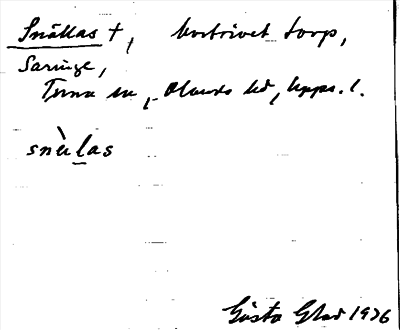 Snällas +, bortrivet torp,
Saringe,
Tuna sn, Olands hd, Upps. l.
snèlas
Gösta Glad 1976